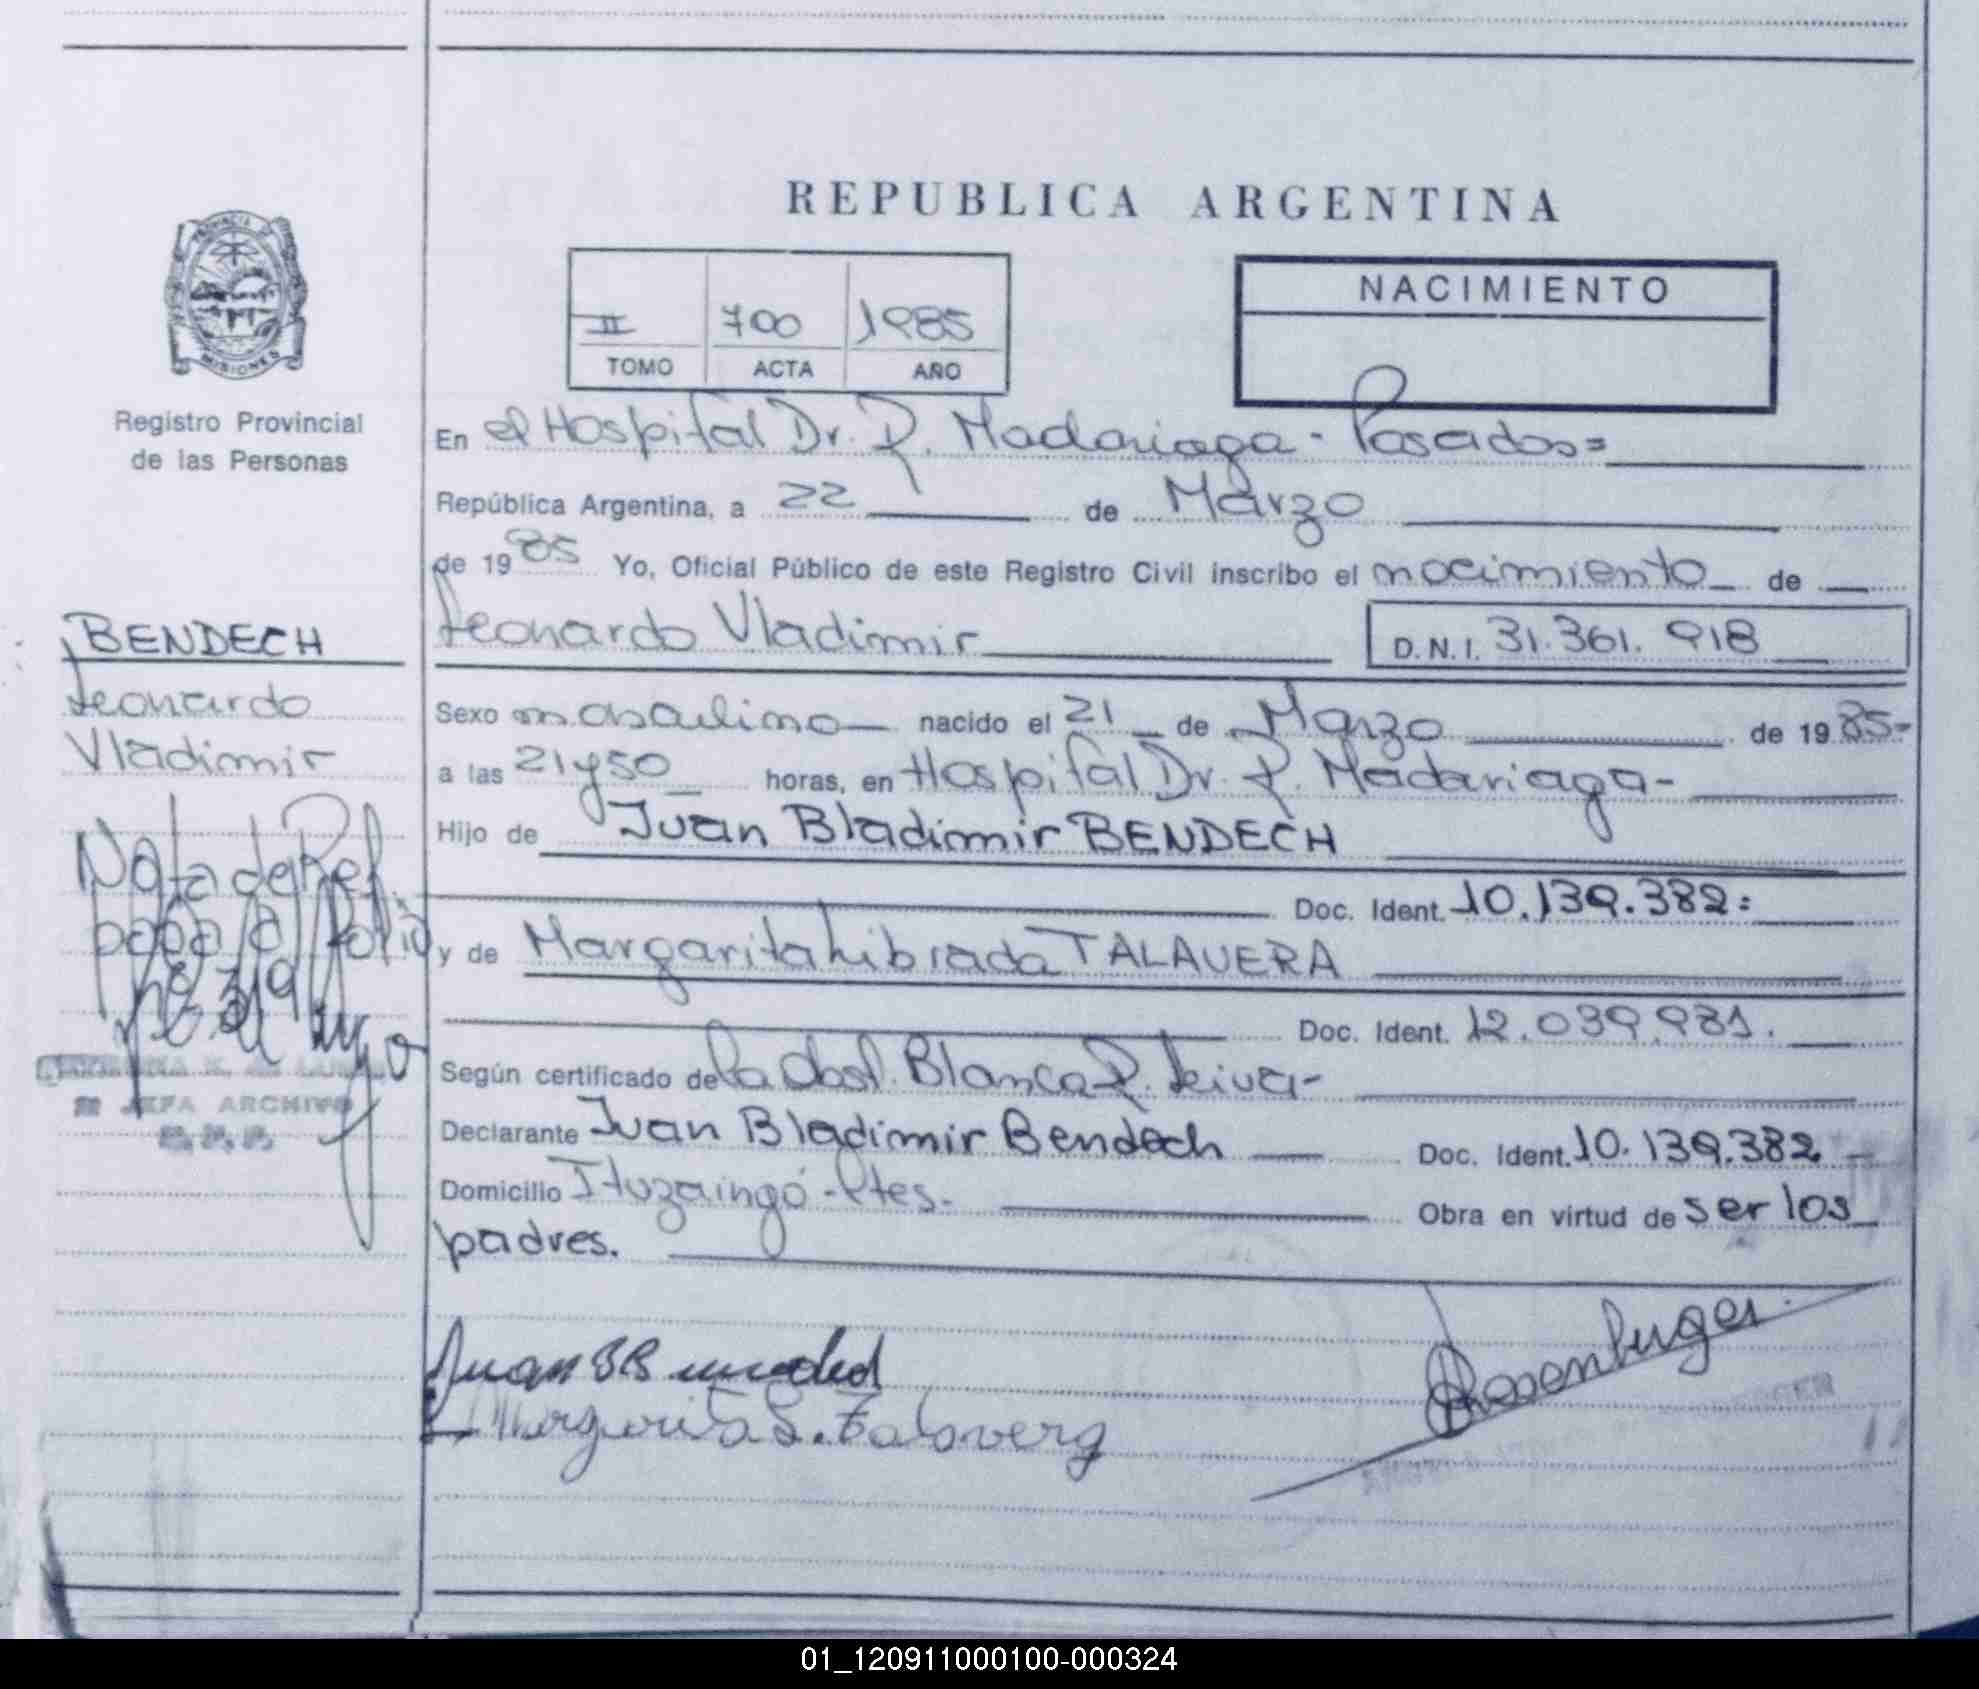 REPUBLICA ARGENTINA
PROVINCIA DE
MISIONES
Registro Provincial
de las Personas
II 700 1985
TOMO ACTA AÑO
NACIMIENTO
En el Hospital Dr. R. Madariaga - Posadas=
República Argentina, a 22 de Marzo
de 1985 Yo, Oficial Público de este Registro Civil inscribo el nacimiento de
Leonardo Vladimir D.N.I. 31.361.918
BENDECH
Leonardo
Vladimir
Sexo masculino nacido el 21 de Marzo de 1985-
a las 21y50 horas, en Hospital Dr. R. Madariaga-
Hijo de Juan Bladimir BENDECH
Doc. Ident. 10.139.382=
y de Margarita Librada TALAVERA
Doc. Ident. 12.039.981.
Según certificado de la Obst. Blanca R. Leiva-
Declarante Juan Bladimir Bendech Doc. Ident. 10.139.382-
Domicilio Ituzaingó-Ctes- Obra en virtud de ser los
padres.
Nota de Ref.
pasa al Folio
Nº 319
JEFA ARCHIVO
R. P. P.
Juan B B
Margarita L. Talavera
01_120911000100-000324